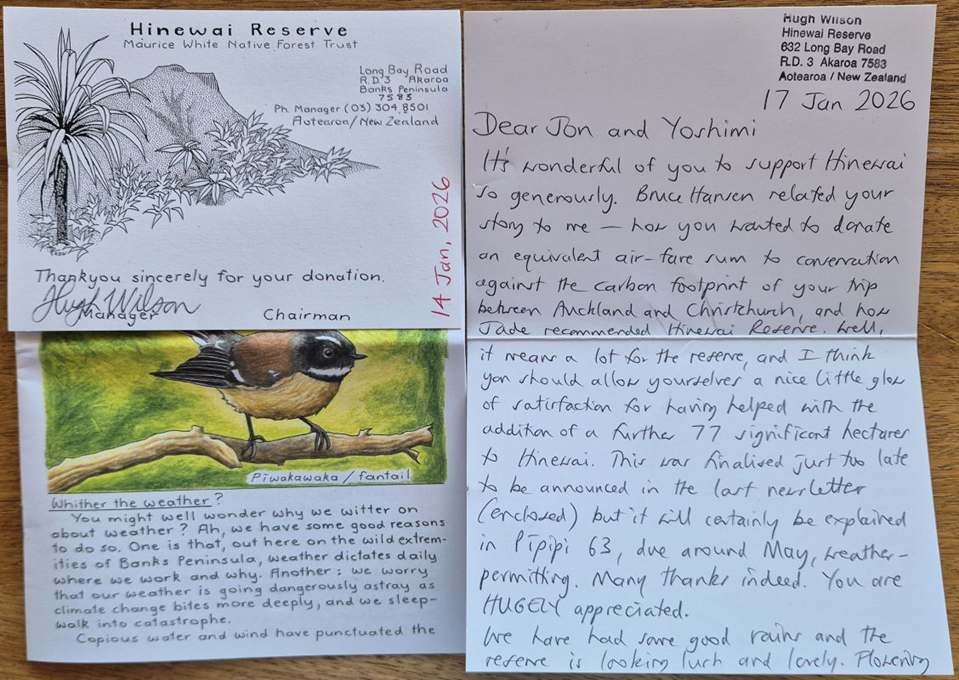 Hinewai Reserve
Maurice White Native Forest Trust
Long Bay Road
R.D.3 Akaroa
Banks Peninsula
7583
Ph. Manager (03) 304 8501
Aotearoa/New Zealand
14 Jan, 2026
Thankyou sincerely for your donation.
Hugh Wilson
Manager Chairman
Piwakawaka/fantail
Whither the weather?
You might well wonder why we witter on
about weather? Ah, we have some good reasons
to do so. One is that, out here on the wild extrem-
ities of Banks Peninsula, weather dictates daily
where we work and why. Another: we worry
that our weather is going dangerously astray as
climate change bites more deeply, and we sleep-
walk into catastrophe.
Copious water and wind have punctuated the
Hugh Wilson
Hinewai Reserve
632 Long Bay Road
R.D. 3 Akaroa 7583
Aotearoa / New Zealand
17 Jan 2026
Dear Jon and Yoshimi
It's wonderful of you to support Hinewai
so generously. Bruce Hansen related your
story to me — how you wanted to donate
an equivalent air-fare sum to conservation
against the carbon footprint of your trip
between Auckland and Christchurch, and how
Jade recommended Hinewai Reserve. Well,
it means a lot for the reserve, and I think
you should allow yourselves a nice little glow
of satisfaction for having helped with the
addition of a further 77 significant hectares
to Hinewai. This was finalised just too late
to be announced in the last newsletter
(enclosed) but it will certainly be explained
in Pīpipi 63, due around May, weather-
permitting. Many thanks indeed. You are
HUGELY appreciated.
We have had some good rains and the
reserve is looking lush and lovely. Flowering